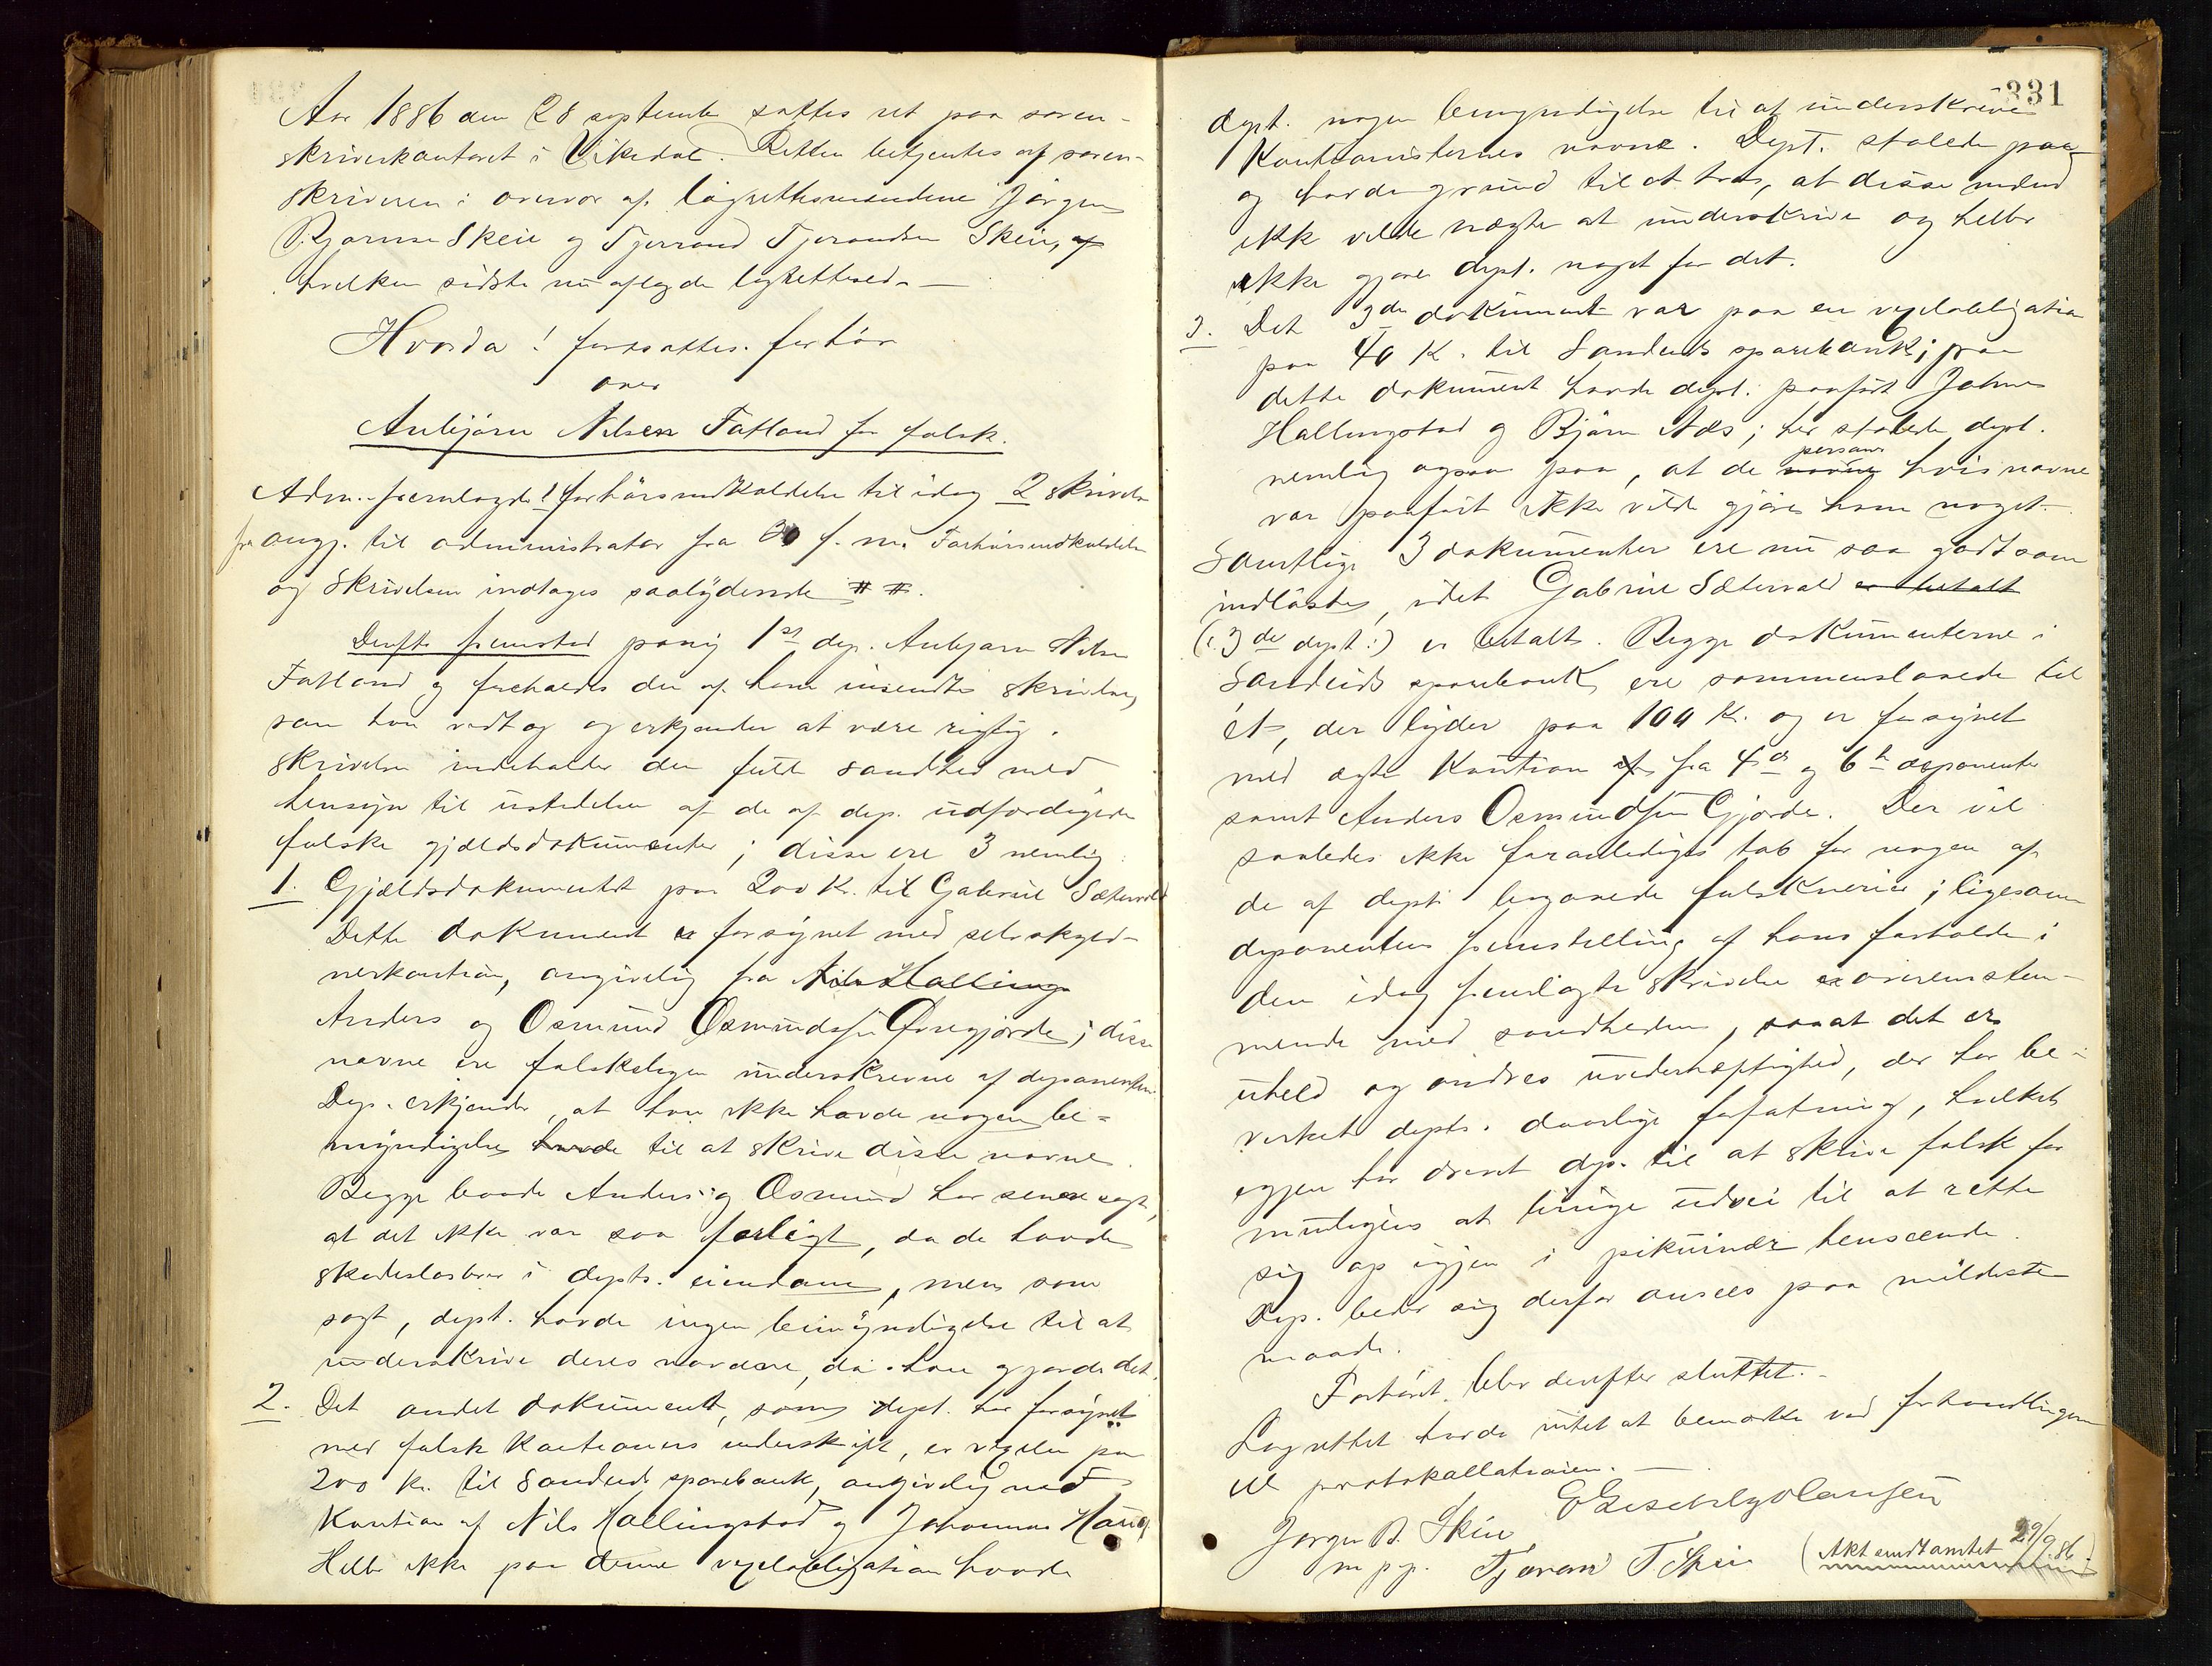 Aar 1886 den 28 septembr sattes ret paa soren-
skriverkontoret i Vikedal. Retten betjentes af soren-
skriveren i overvær af lagrettesmændene Jørgen
Bjørnsen Skeie og Tjerrand Tjerandsen Skeie, af
hvilken sidste nu aflagde lagretteed. —
Hvorda! fortsattes forhør
over
Anbjørn Nilsen Fatland for falsk.
Adm. fremlagde 1 forhørsindkaldelse til idag 2 skrivelse
fra angj. til administrator fra 20 f. m. Forhørsindkaldelsen
og skrivelsen indtages saalydende # #.
Derefter fremstod paany 1ste dep. Anbjørn Nilsen
Fatland og foreholdes den af ham insendte skrivelse,
som han vedtog og erkjender at være rigtig.
Skrivelsen indeholder den fulde sandhed med
hensyn til udstedelsen af de af dep. udfærdigede
falske gjældsdokumenter; disse ere 3 nemlig
1. Gjældsdokumentet paa 200 K. til Gabriel Sætervold
Dette dokument er forsynet med selvskyld-
nerkaution, angivelig fra Nils Halling
Anders og Osmund Osmundsen Øvregjærde; disse
navne ere falskeligen underskrevne af deponenten.
Dep. erkjender, at han ikke havde nogen be-
myndigelse havde til at skrive disse navne.
Begge baade Anders og Osmund har senere sagt,
at det ikke var saa farligt, da de havde
skadesløsbrev i depts. eiendom, men som
sagt, dept. havde ingen bemyndigelse til at
underskrive deres navne, da han gjorde det.
2. Det andet dokument, som dept. har forsynet
med falsk kautionens underskrift, er vexelen paa
200 K. til Sandeids sparebank, angivelig med
Kaution af Nils Hallingstad og Johannes Haug.
Heller ikke paa denne vexelobligation havde
331
dept. nogen bemyndigelse til at underskrive
Kautionisternes navne. Dept. stolede paa
og havde grund til at tro, at disse mænd
ikke vilde nægte at underskrive og heller
ikke gjøre dept. noget for det.
3. Det 3die dokument var paa en vexelobligation
paa 40 K. til Sandeids sparebank; paa
dette dokument havde dept. paaført Johannes
Hallingstad og Bjørn Aas; her stolede dept.
nemlig ogsaa paa, at de navne personer hvis navne
var paaført ikke vilde gjøre ham noget.
Samtlige 3 dokumenter ere nu saa godt som
indløste, idet Gabriel Sætervold er betalt
(: 3die dept :) er betalt. Begge dokumenterne i
Sandeids sparebank ere sammenslaaede til
ét, der lyder paa 100 K. og er forsynet
med ægte Kaution af fra 4de og 6te deponenter
samt Anders Osmundsen Gjærde. Der vil
saaledes ikke foranlediges tab for nogen af
de af dept. begaaede falsknerier; ligesom
deponentens fremstilling af hans forholde i
den idag fremlagte skrivelse er overensstem-
mende med sandheden, saaat det er
uheld og andres uvederhæftighed, der har be-
virket depts. daarlige forfatning, hvilket
igjen har drevet dep. til at skrive falsk for
muligens at bringe udvei til at rette
sig op igjen i pekuniær henseende.
Dep. beder sig derfor ansees paa mildeste
maade.
Forhøret blev derefter sluttet. -
Lagrettet havde intet at bemærke ved forhandlingen
el protokollationen. —
Jørgen B. Skeie
m p p. Tjeran T Skeie (Akt sendt amtet 29/9 86.)